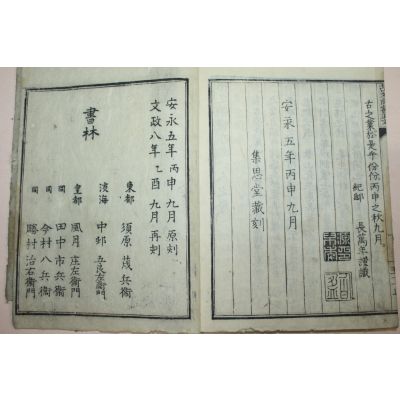 古之業於是乎份份丙申之秋九月
紀邸 長萬年謹識
安永五年丙申九月
集思堂藏刻
安永五年丙申九月原刻
文政八年乙酉九月再刻
書林
東都 須原茂兵衛
浪海 中邨吾良左衛門
皇都 風月庄左衛門
同 田中市兵衛
同 今村八兵衛
同 勝村治右衛門